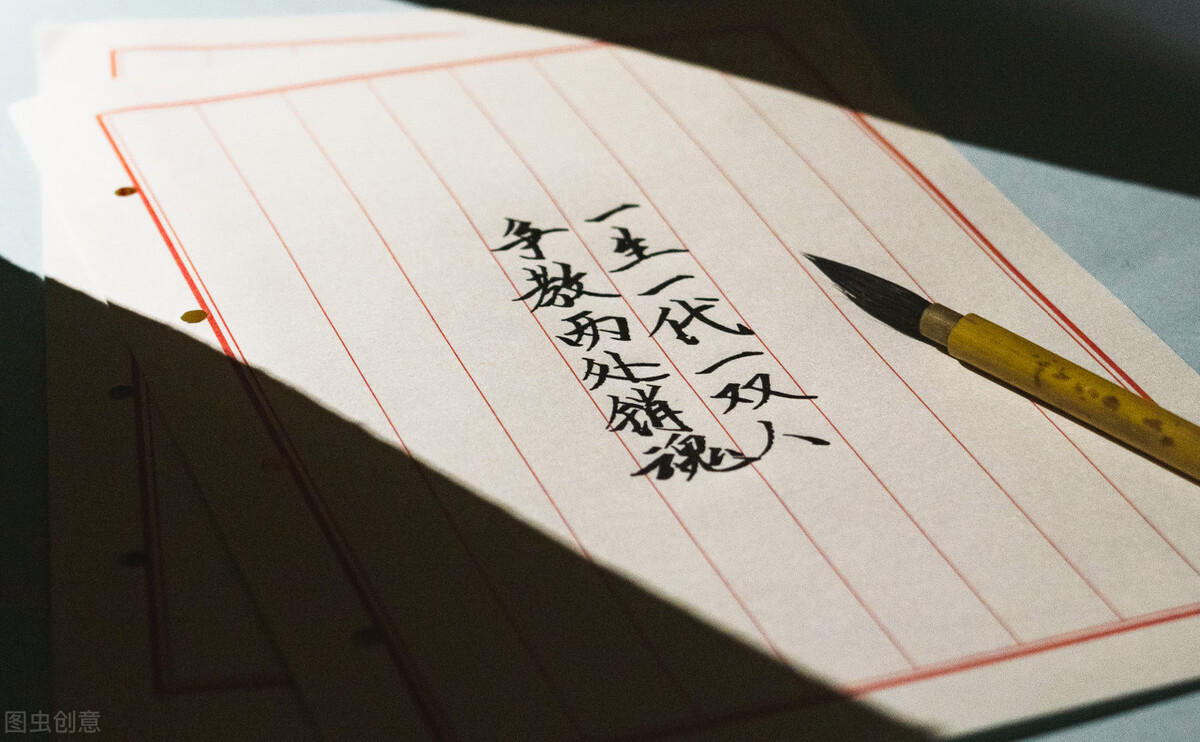 一生一代一双人
争教两处销魂
图虫创意